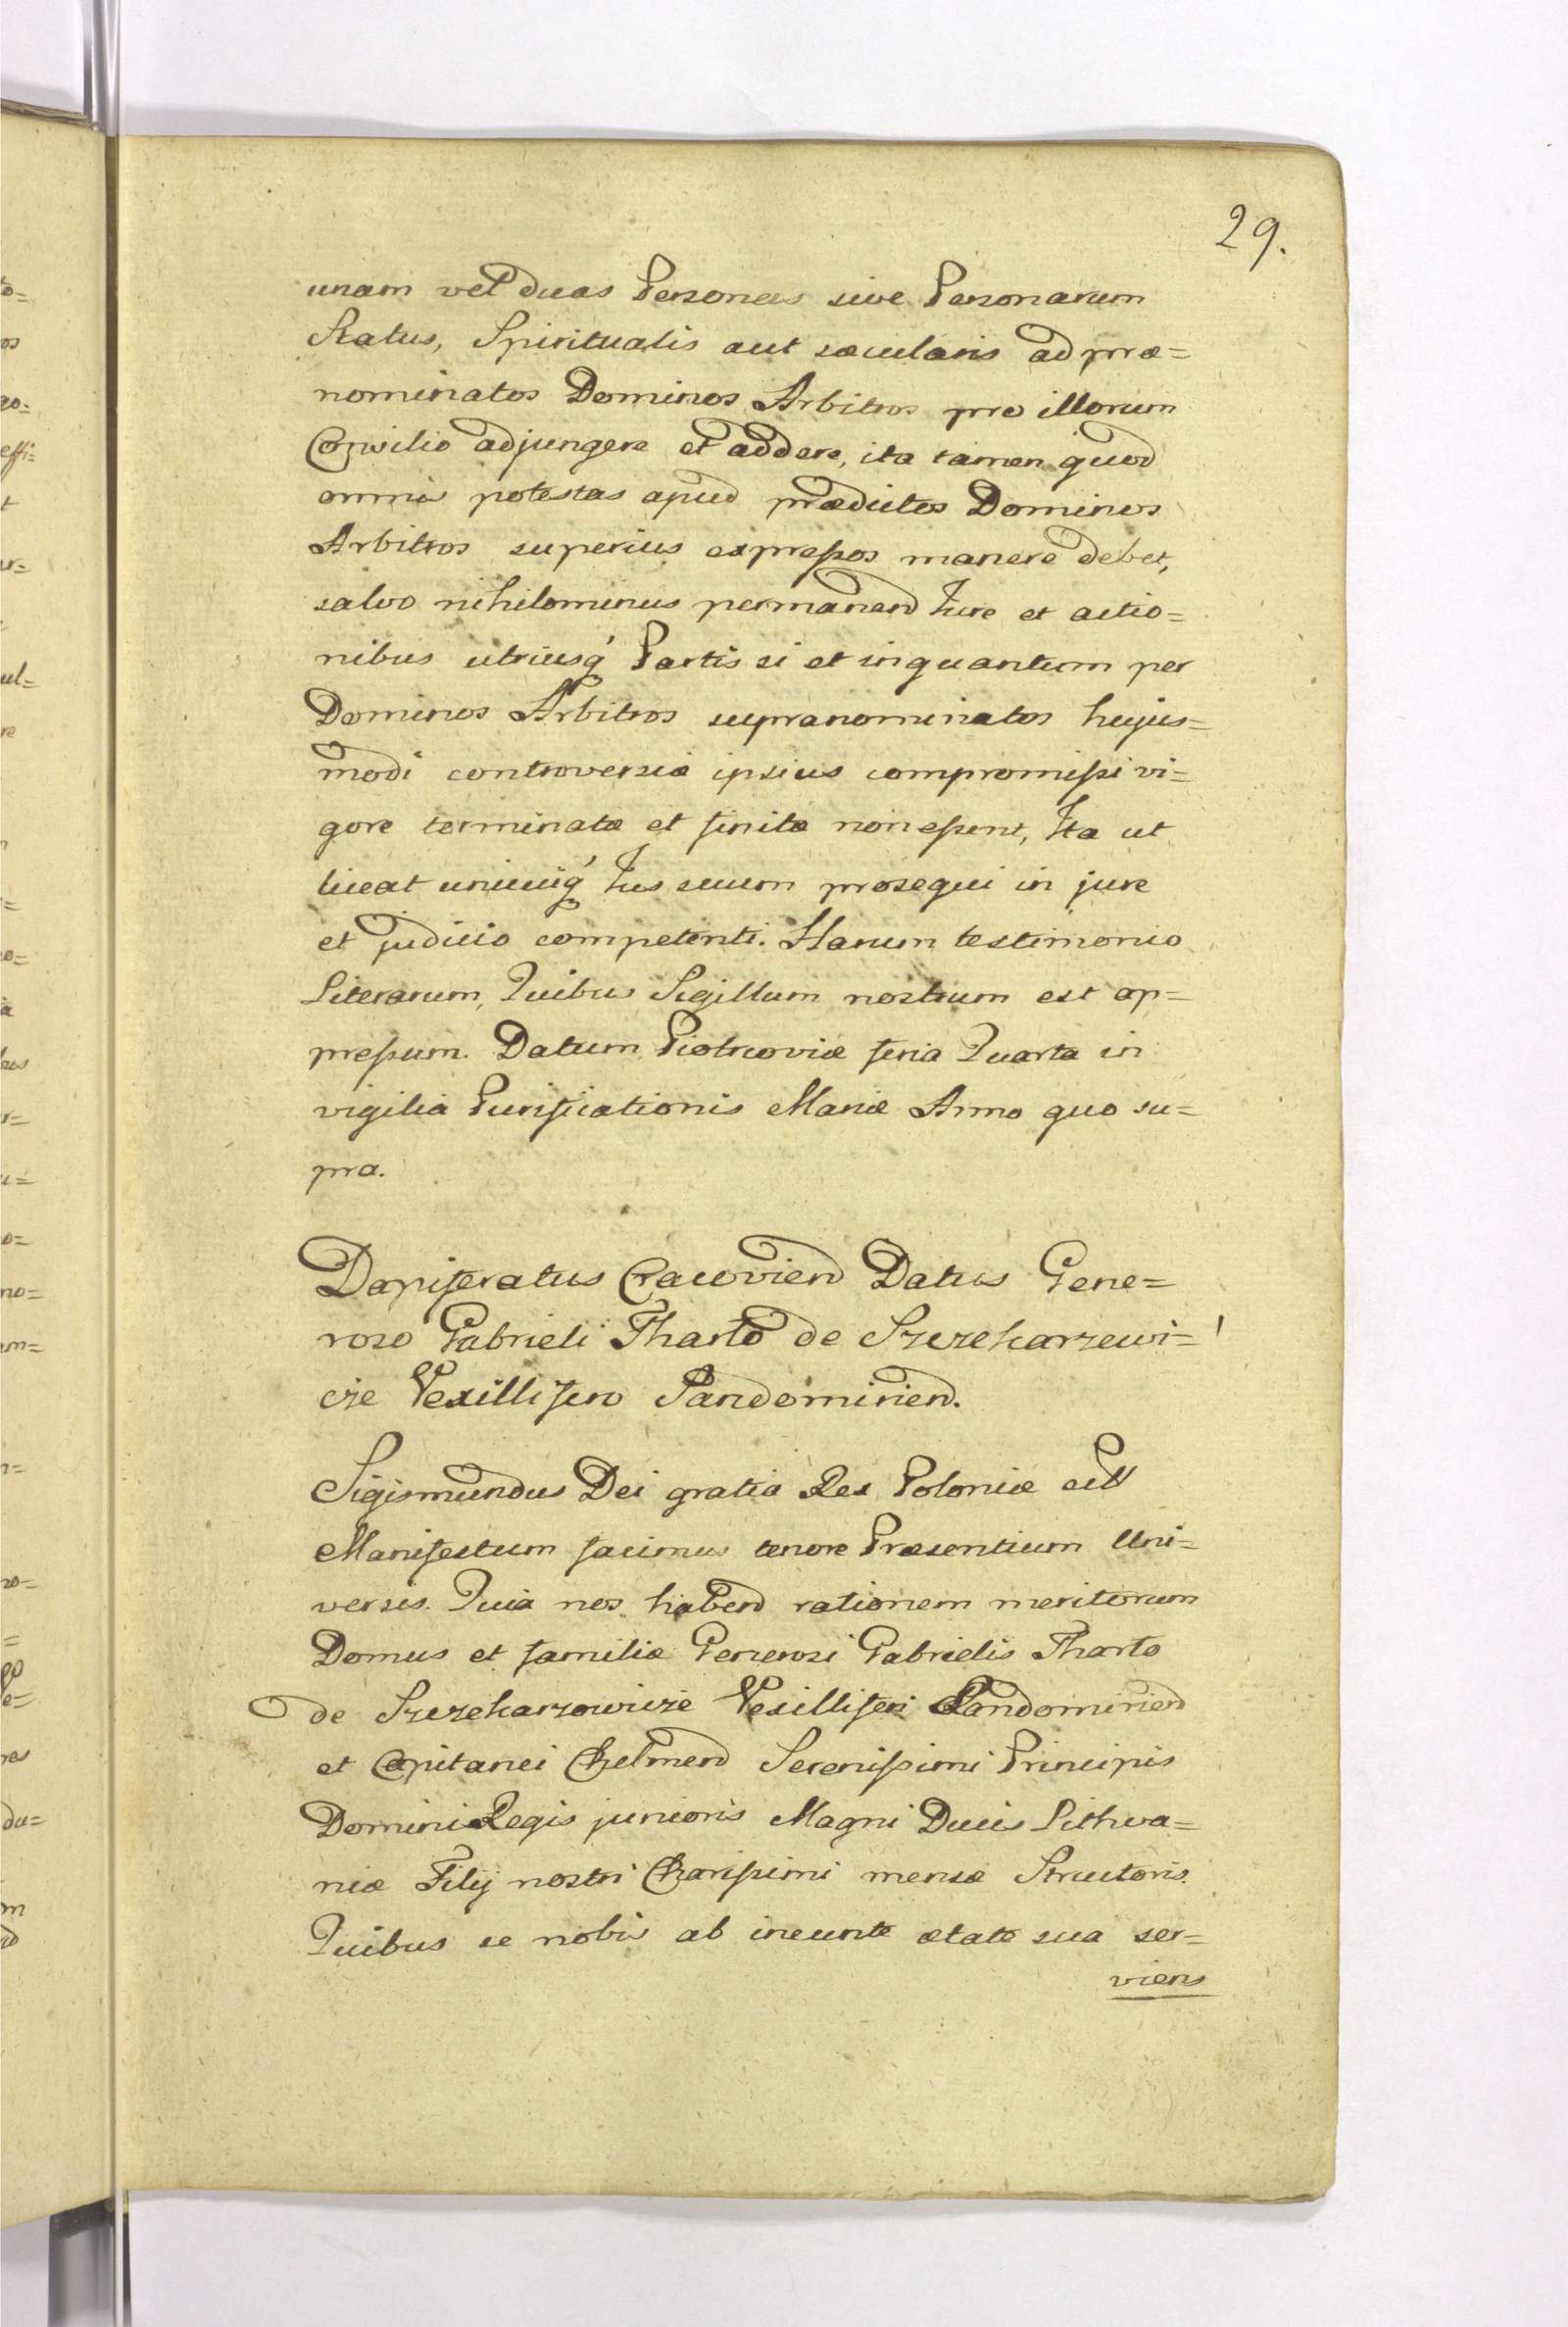 29.
unam vel duas Personas sive Personarum
Status, Spiritualis aut sæcularis ad præ=
nominatos Dominos Arbitros pro illorum
Consilio adjungere et addere, ita tamen quod
omnis potestas apud prædictos Dominos
Arbitros superius expreſsos manere debet,
salvo nihilominus permanen Iure et actio=
nibus utriusq́ Partis si et inquantum per
Dominos Arbitros supranominatos hujus=
modi controversiæ ipsius compromiſsi vi=
gore terminatæ et finitæ non eſsent, Ita ut
liceat unicuiq́ Ius suum prosequi in jure
et judicio competenti. Harum testimonio
Literarum, Quibus Sigillum nostrum est ap=
preſsum. Datum Piotrcoviæ feria Quarta in
vigilia Purificationis Mariæ Anno quo su=
pra.
Dapiferatus Cracovien Datus Gene=
roso Gabrieli Tharło de Szczekarzewi=
cze Vexillifero Sandomirien.
Sigismundus Dei gratia Rex Poloniæ ett
Manifestum facimus tenore Præsentium Uni=
versis. Quia nos haben rationem meritorum
Domus et familiæ Generosi Gabrielis Tharło
de Szczekarzowicze Vexilliferi Sandomirien
et Capitanei Chelmen Sereniſsimi Principis
Domini Regis junioris Magni Ducis Lithva=
niæ Filij nostri Chariſsimi mensæ Structoris.
Quibus se nobis ab ineunte ætate sua ser=
viens